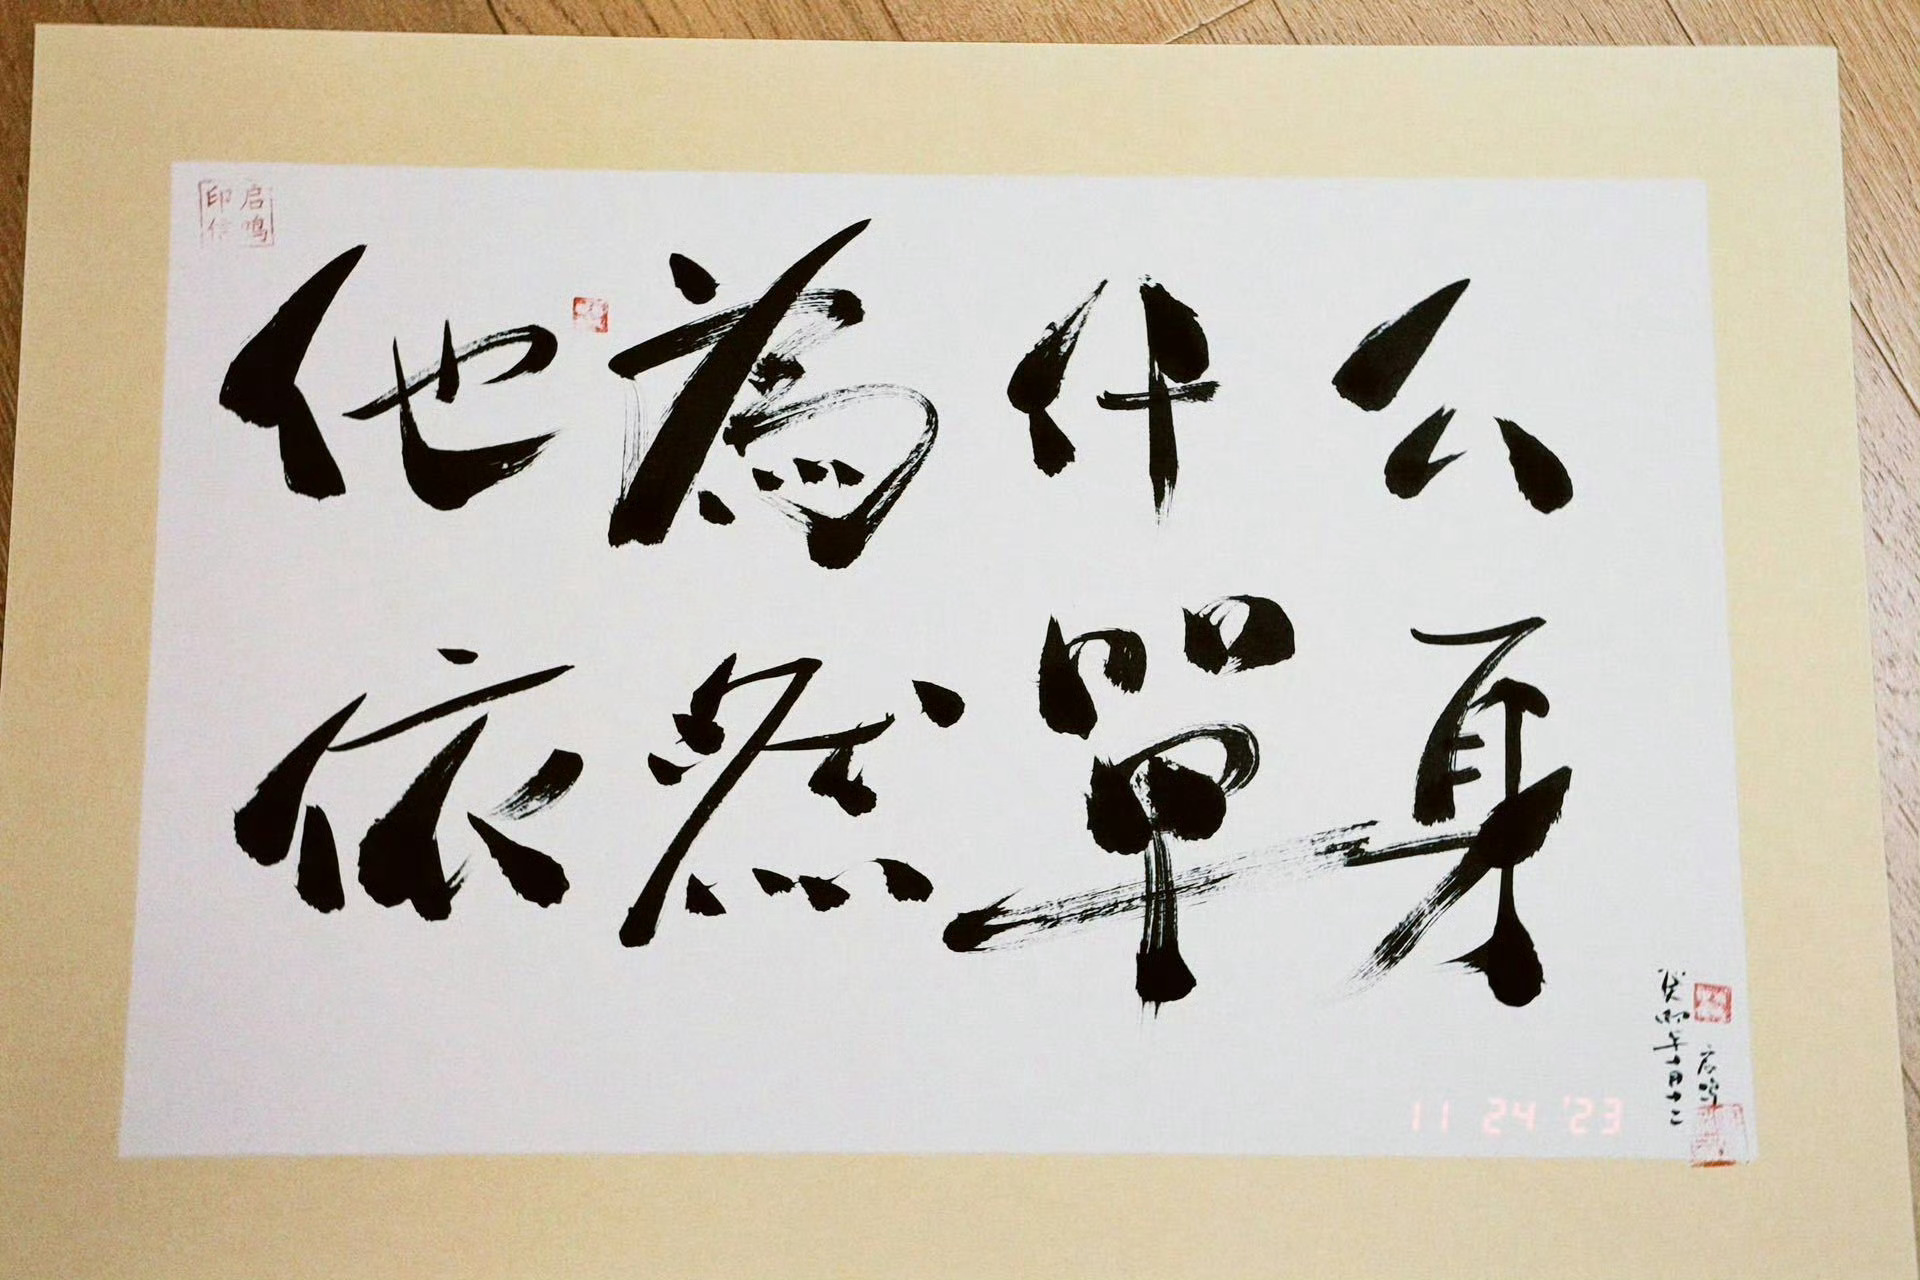 启鸣
印信
他為什么
依然單身
癸卯年十月十二
启鸣
11 24 '23